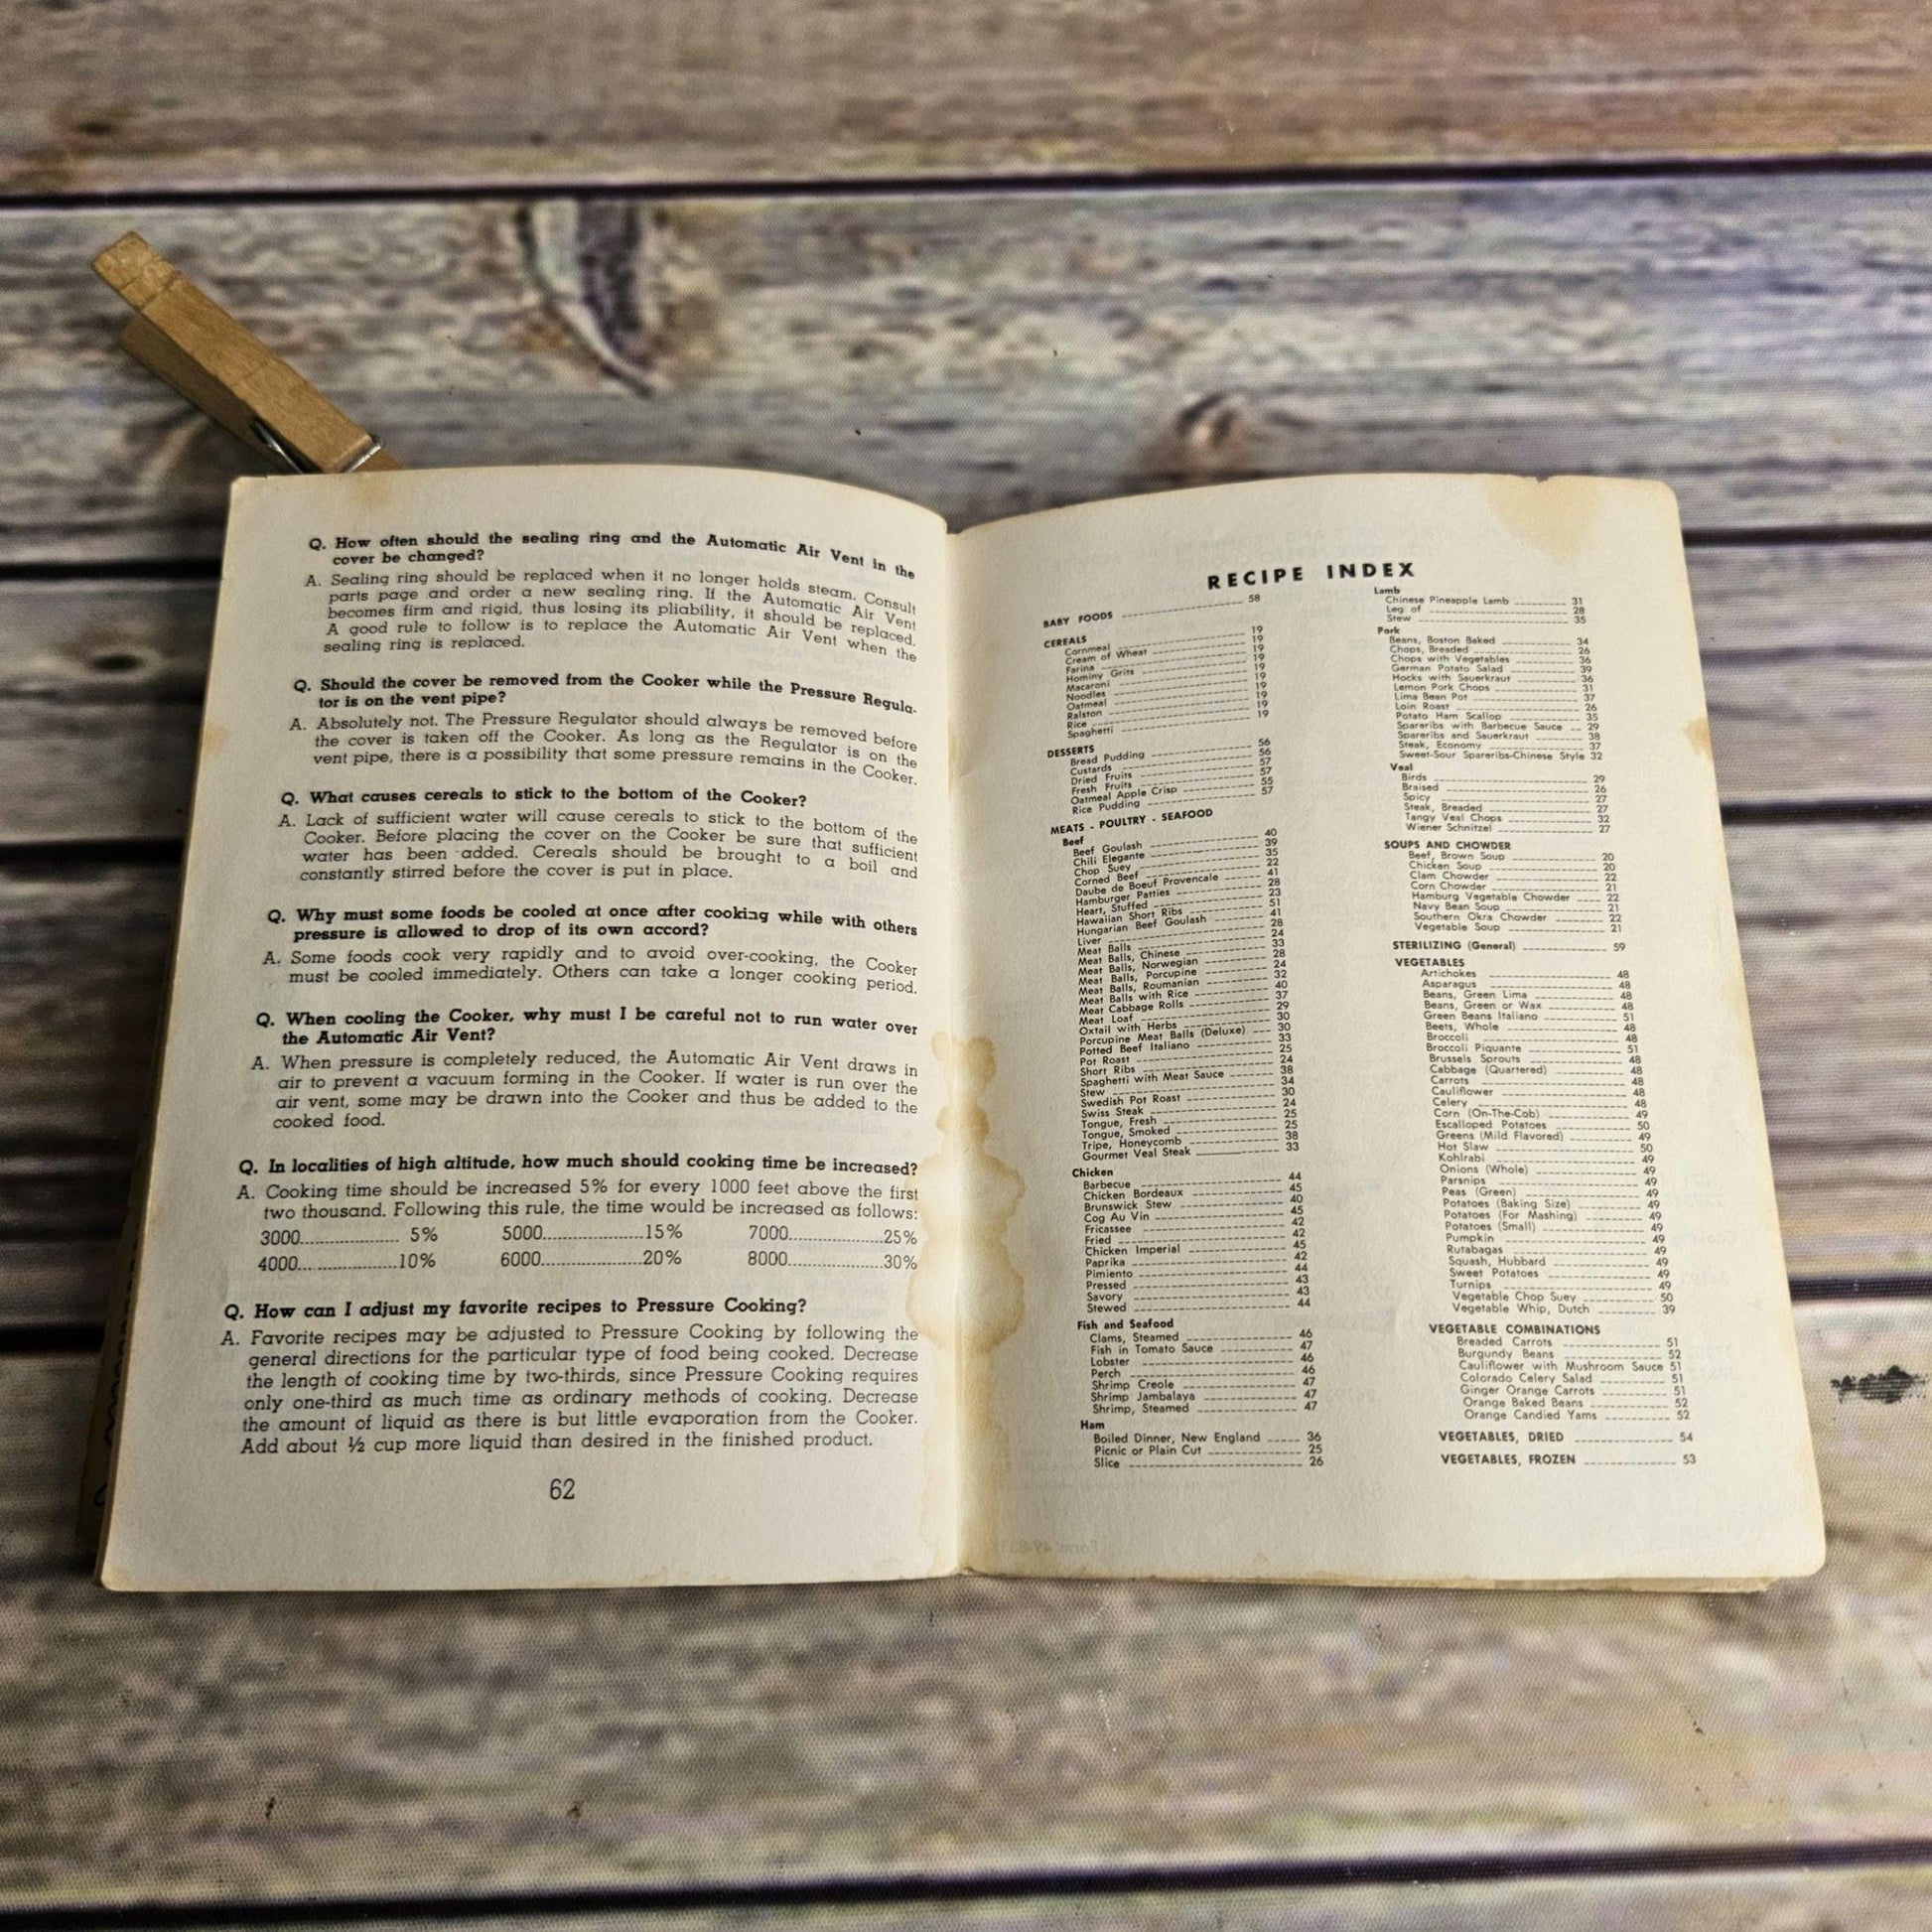 Q. How often should the sealing ring and the Automatic Air Vent in the
cover be changed?
A. Sealing ring should be replaced when it no longer holds steam. Consult
parts page and order a new sealing ring. If the Automatic Air Vent
becomes firm and rigid, thus losing its pliability, it should be replaced.
A good rule to follow is to replace the Automatic Air Vent when the
sealing ring is replaced.
Q. Should the cover be removed from the Cooker while the Pressure Regula-
tor is on the vent pipe?
A. Absolutely not. The Pressure Regulator should always be removed before
the cover is taken off the Cooker. As long as the Regulator is on the
vent pipe, there is a possibility that some pressure remains in the Cooker.
Q. What causes cereals to stick to the bottom of the Cooker?
A. Lack of sufficient water will cause cereals to stick to the bottom of the
Cooker. Before placing the cover on the Cooker be sure that sufficient
water has been added. Cereals should be brought to a boil and
constantly stirred before the cover is put in place.
Q. Why must some foods be cooled at once after cooking while with others
pressure is allowed to drop of its own accord?
A. Some foods cook very rapidly and to avoid over-cooking, the Cooker
must be cooled immediately. Others can take a longer cooking period.
Q. When cooling the Cooker, why must I be careful not to run water over
the Automatic Air Vent?
A. When pressure is completely reduced, the Automatic Air Vent draws in
air to prevent a vacuum forming in the Cooker. If water is run over the
air vent, some may be drawn into the Cooker and thus be added to the
cooked food.
Q. In localities of high altitude, how much should cooking time be increased?
A. Cooking time should be increased 5% for every 1000 feet above the first
two thousand. Following this rule, the time would be increased as follows:
3000 5% 5000 15% 7000 25%
4000 10% 6000 20% 8000 30%
Q. How can I adjust my favorite recipes to Pressure Cooking?
A. Favorite recipes may be adjusted to Pressure Cooking by following the
general directions for the particular type of food being cooked. Decrease
the length of cooking time by two-thirds, since Pressure Cooking requires
only one-third as much time as ordinary methods of cooking. Decrease
the amount of liquid as there is but little evaporation from the Cooker.
Add about ½ cup more liquid than desired in the finished product.
62
RECIPE INDEX
BABY FOODS 58
CEREALS
Cornmeal 19
Cream of Wheat 19
Farina 19
Hominy Grits 19
Macaroni 19
Noodles 19
Oatmeal 19
Ralston 19
Rice 19
Spaghetti 19
DESSERTS
Bread Pudding 56
Custards 56
Dried Fruits 57
Fresh Fruits 57
Oatmeal Apple Crisp 55
Rice Pudding 57
MEATS - POULTRY - SEAFOOD
Beef
Beef Goulash 40
Chili Elegante 39
Chop Suey 35
Corned Beef 22
Daube de Boeuf Provencale 41
Hamburger Patties 28
Heart, Stuffed 23
Hawaiian Short Ribs 51
Hungarian Beef Goulash 41
Liver 28
Meat Balls 24
Meat Balls, Chinese 33
Meat Balls, Norwegian 28
Meat Balls, Porcupine 24
Meat Balls, Roumanian 32
Meat Balls with Rice 40
Meat Cabbage Rolls 37
Meat Loaf 29
Oxtail with Herbs 30
Porcupine Meat Balls (Deluxe) 30
Potted Beef Italiano 33
Pot Roast 25
Short Ribs 24
Spaghetti with Meat Sauce 38
Stew 34
Swedish Pot Roast 30
Swiss Steak 24
Tongue, Fresh 25
Tongue, Smoked 25
Tripe, Honeycomb 38
Gourmet Veal Steak 33
Chicken
Barbecue 44
Chicken Bordeaux 45
Brunswick Stew 40
Cog Au Vin 45
Fricassee 42
Fried 42
Chicken Imperial 45
Paprika 42
Pimiento 44
Pressed 43
Savory 43
Stewed 44
Fish and Seafood
Clams, Steamed 46
Fish in Tomato Sauce 47
Lobster 46
Perch 46
Shrimp Creole 47
Shrimp Jambalaya 47
Shrimp, Steamed 47
Ham
Boiled Dinner, New England 36
Picnic or Plain Cut 25
Slice 26
Lamb
Chinese Pineapple Lamb 31
Leg of 28
Stew 35
Pork
Beans, Boston Baked 34
Chops, Breaded 26
Chops with Vegetables 36
German Potato Salad 39
Hocks with Sauerkraut 36
Lemon Pork Chops 31
Lima Bean Pot 37
Loin Roast 26
Potato Ham Scallop 35
Spareribs with Barbecue Sauce 29
Spareribs and Sauerkraut 38
Steak, Economy 37
Sweet-Sour Spareribs-Chinese Style 32
Veal
Birds 29
Braised 26
Spicy 27
Steak, Breaded 27
Tangy Veal Chops 32
Wiener Schnitzel 27
SOUPS AND CHOWDER
Beef, Brown Soup 20
Chicken Soup 20
Clam Chowder 22
Corn Chowder 21
Hamburg Vegetable Chowder 22
Navy Bean Soup 21
Southern Okra Chowder 22
Vegetable Soup 21
STERILIZING (General) 59
VEGETABLES
Artichokes 48
Asparagus 48
Beans, Green Lima 48
Beans, Green or Wax 48
Green Beans Italiano 51
Beets, Whole 48
Broccoli 48
Broccoli Piquante 51
Brussels Sprouts 48
Cabbage (Quartered) 48
Carrots 48
Cauliflower 48
Celery 48
Corn (On-The-Cob) 49
Escalloped Potatoes 50
Greens (Mild Flavored) 49
Hot Slaw 50
Kohlrabi 49
Onions (Whole) 49
Parsnips 49
Peas (Green) 49
Potatoes (Baking Size) 49
Potatoes (For Mashing) 49
Potatoes (Small) 49
Pumpkin 49
Rutabagas 49
Squash, Hubbard 49
Sweet Potatoes 49
Turnips 49
Vegetable Chop Suey 50
Vegetable Whip, Dutch 39
VEGETABLE COMBINATIONS
Breaded Carrots 51
Burgundy Beans 52
Cauliflower with Mushroom Sauce 51
Colorado Celery Salad 51
Ginger Orange Carrots 51
Orange Baked Beans 52
Orange Candied Yams 52
VEGETABLES, DRIED 54
VEGETABLES, FROZEN 53